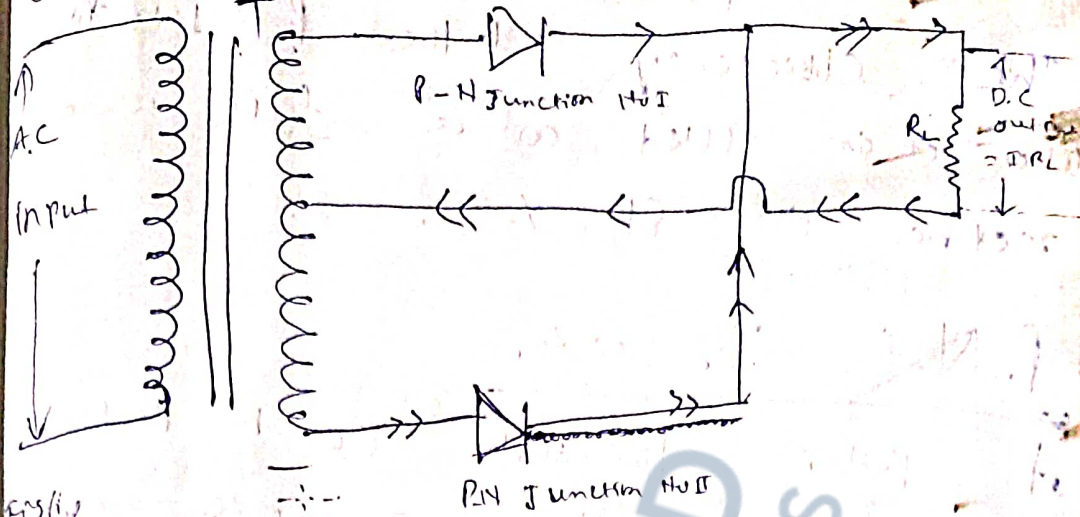 A.C
Input
P-N Junction No I
RL
D.C
output
= I RL
PN Junction No II